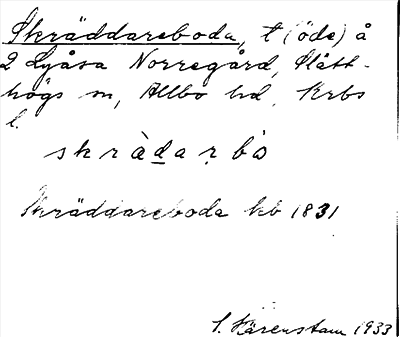 Skräddareboda, t (öde) å
2 Lyåsa Norregård, Slätt-
högs sn, Allbo hd, Krbs
l.
skràdarbo
Skräddareboda kb 1831
S. Härenstam 1933